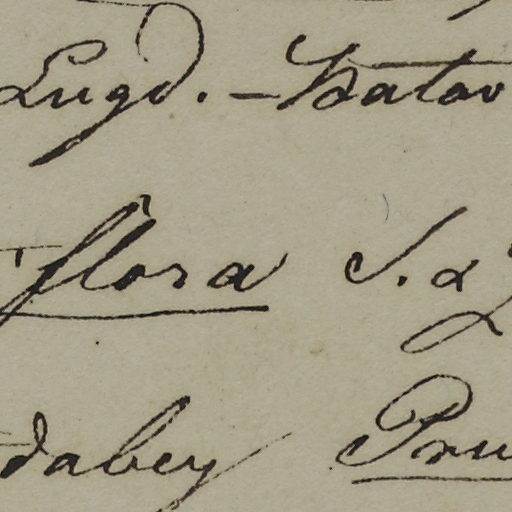 Lugd.-Batav
flora S. &
dabey Pru